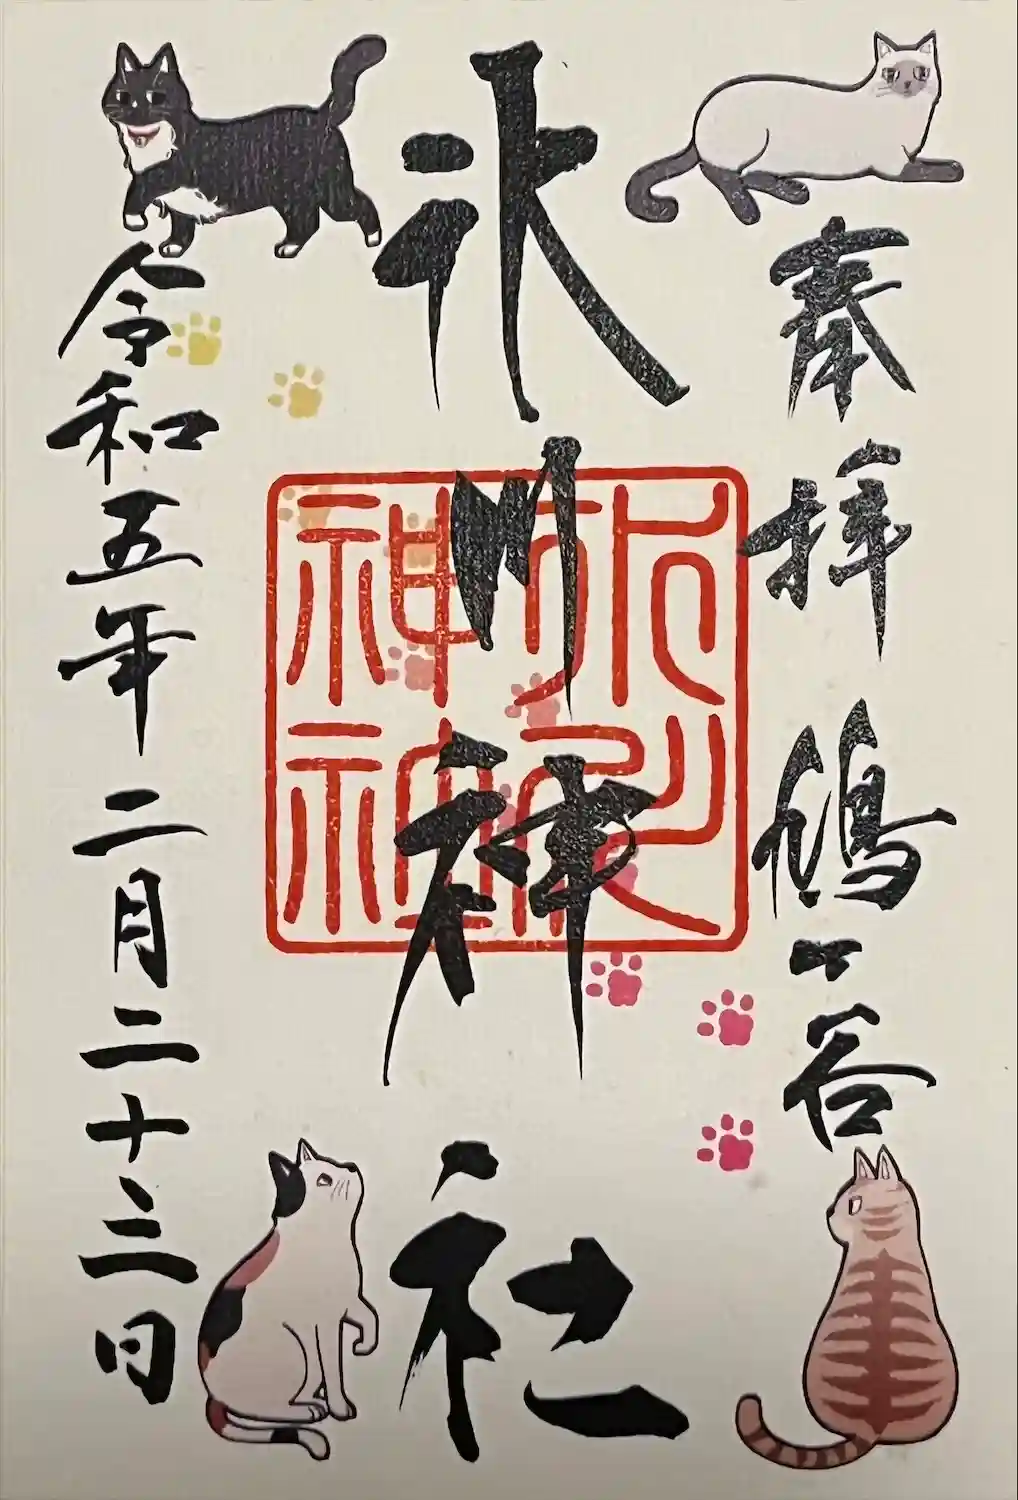 奉拝 鳩ヶ谷
氷川神社
令和五年二月二十三日